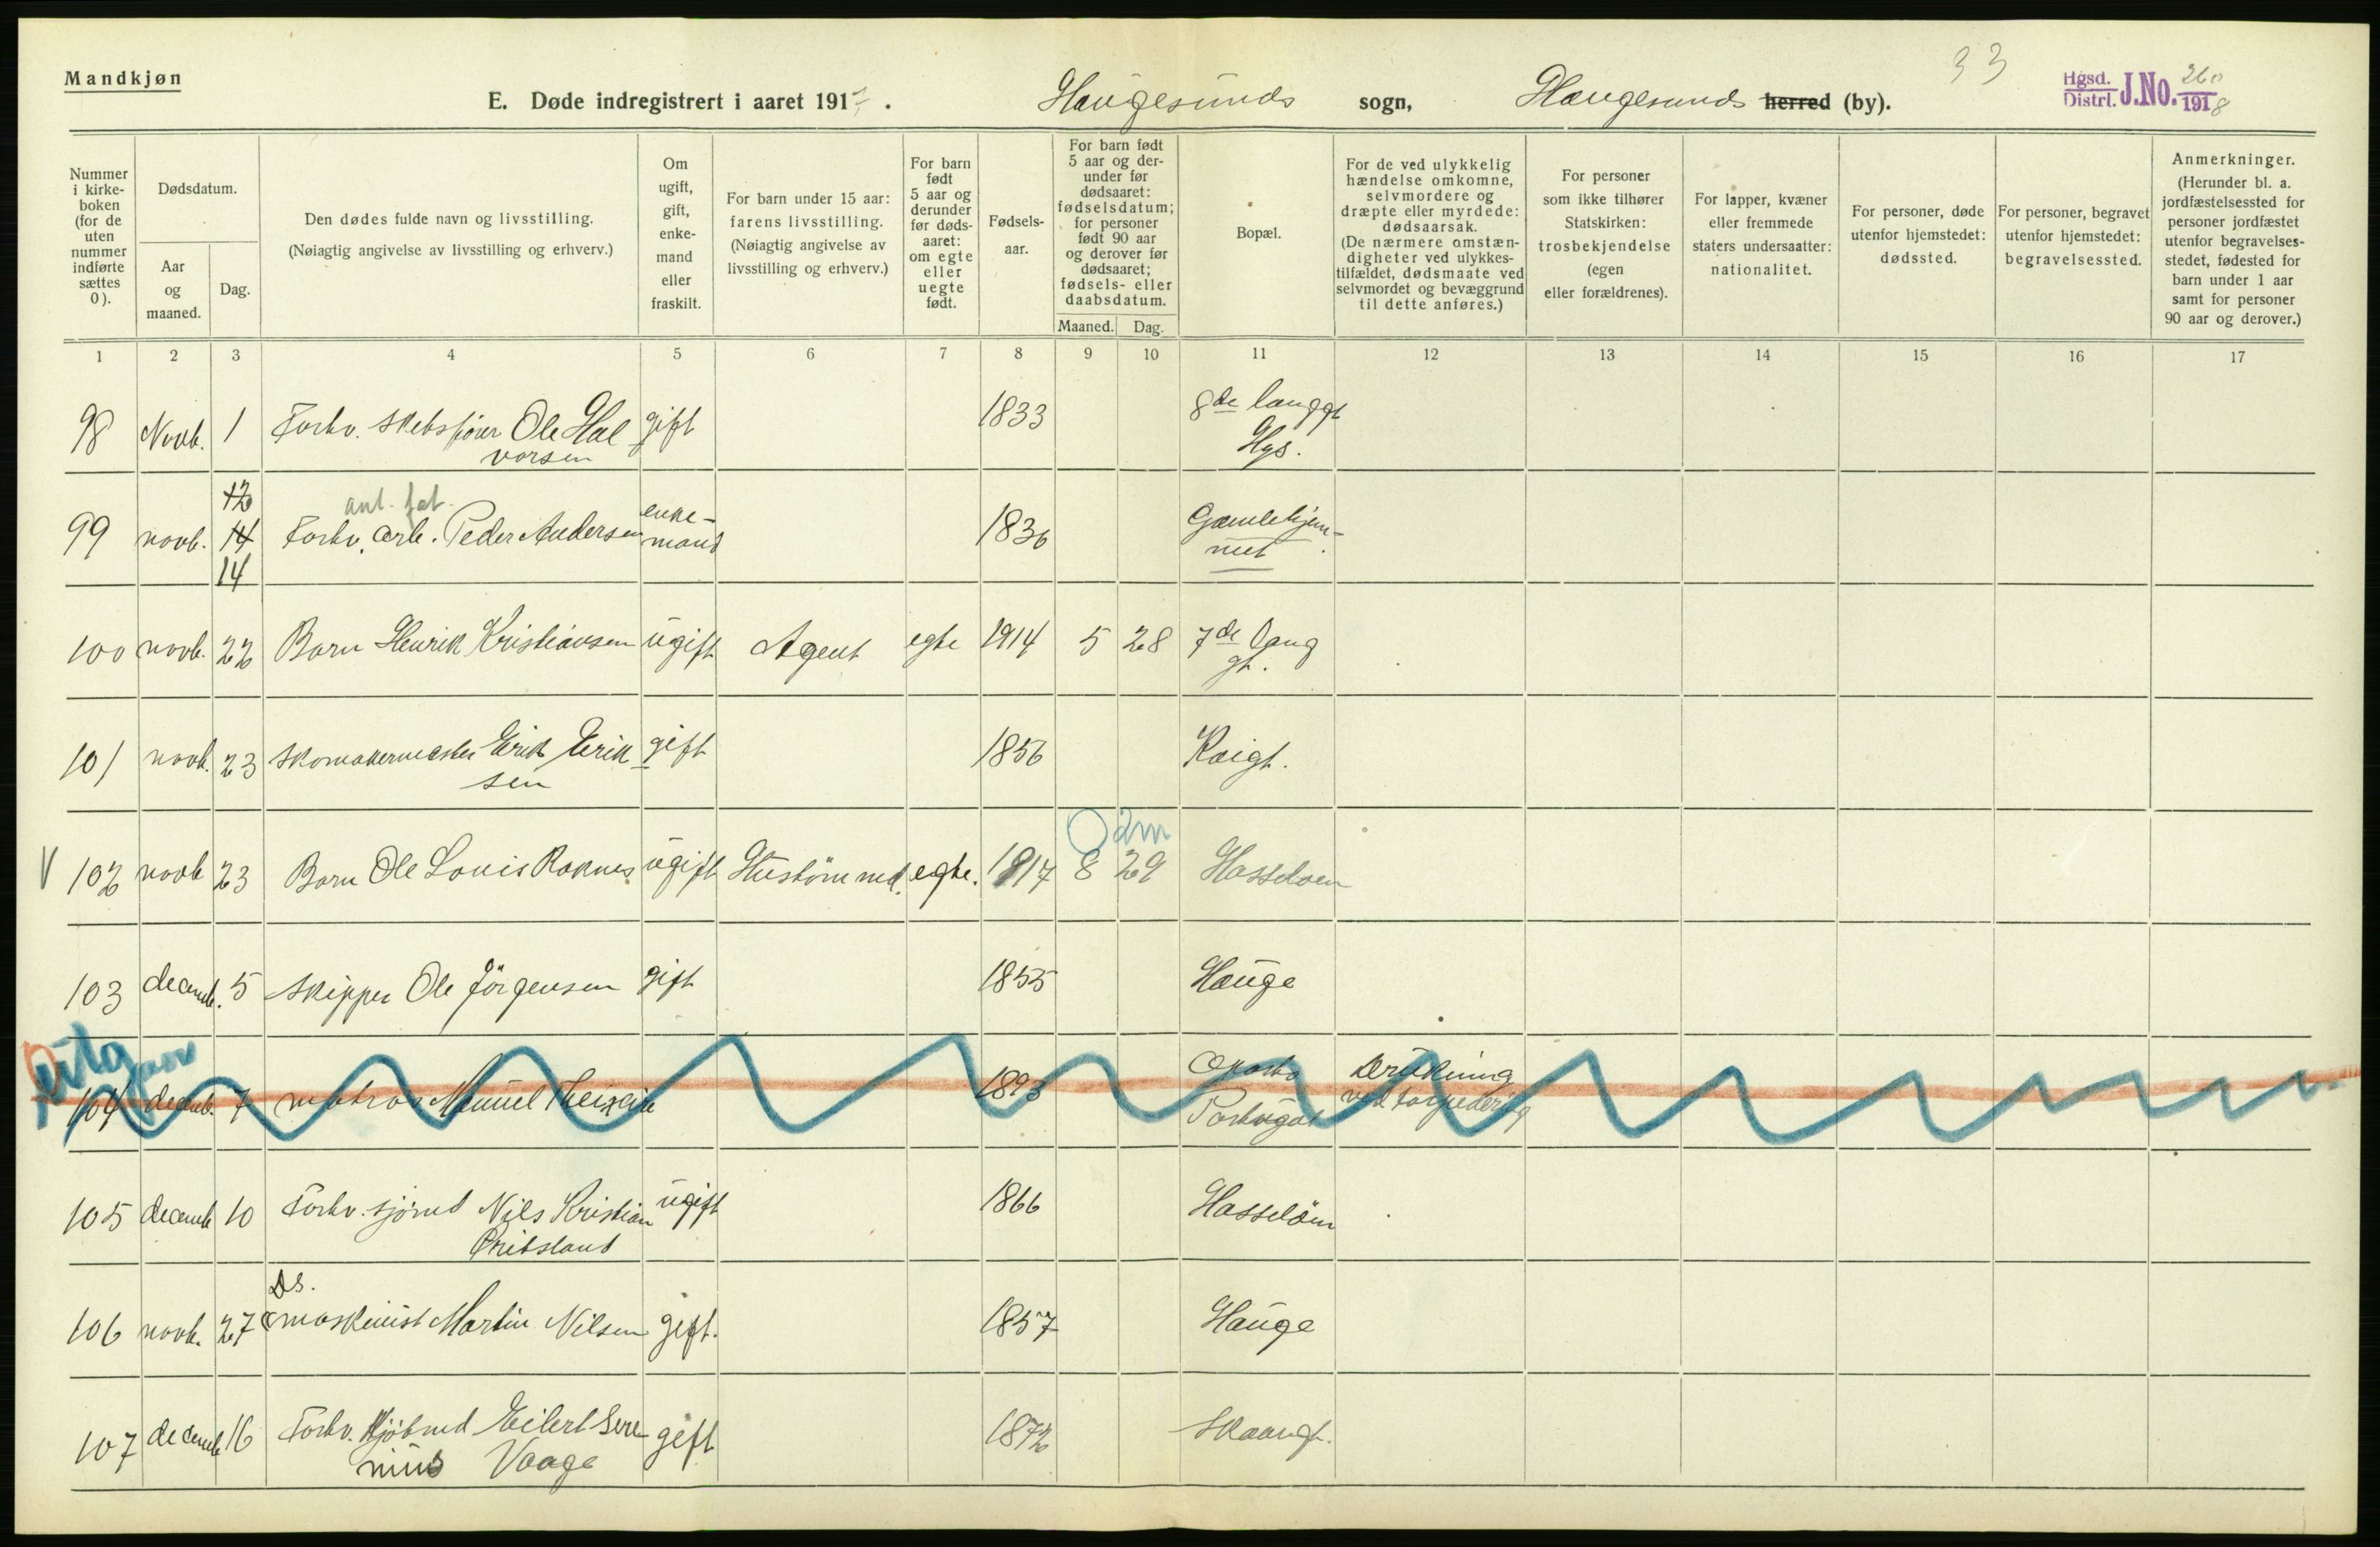 Mandkjøn
E. Døde indregistrert i aaret 1917. Haugesunds sogn, Haugesunds herred (by).
33
Hgsd. Distrl. J.No. 260 1918
Nummer i kirke-boken (for de uten nummer indførte sættes 0).
Dødsdatum.
Aar og maaned.
Dag.
Den dødes fulde navn og livsstilling.
(Nøiagtig angivelse av livsstilling og erhverv.)
Om ugift, gift, enke-mand eller fraskilt.
For barn under 15 aar: farens livsstilling.
(Nøiagtig angivelse av livsstilling og erhverv.)
For barn født 5 aar og derunder før døds-aaret: om egte eller uegte født.
Fødsels-aar.
For barn født 5 aar og der-under før dødsaaret: fødselsdatum; for personer født 90 aar og derover før dødsaaret; fødsels- eller daabsdatum.
Maaned. Dag.
Bopæl.
For de ved ulykkelig hændelse omkomne, selvmordere og dræpte eller myrdede: dødsaarsak.
(De nærmere omstæn-digheter ved ulykkes-tilfældet, dødsmaate ved selvmordet og bevæggrund til dette anføres.)
For personer som ikke tilhører Statskirken: trosbekjendelse (egen eller forældrenes).
For lapper, kvæner eller fremmede staters undersaatter: nationalitet.
For personer, døde utenfor hjemstedet: dødssted.
For personer, begravet utenfor hjemstedet: begravelsessted.
Anmerkninger.
(Herunder bl. a. jordfæstelsessted for personer jordfæstet utenfor begravelses-stedet, fødested for barn under 1 aar samt for personer 90 aar og derover.)
1 2 3 4 5 6 7 8 9 10 11 12 13 14 15 16 17
98 Novb. 1 Forhv. skibsfører Ole Hal gift 1833 8de langgt
vorsen Hgs.
12
ant. fat.
99 novb. 14 Forhv. arb. Peder Andersen enke- 1836 Gamlehjem-
14 mand met
100 novb. 22 Barn Henrik Kristiansen ugift Agent egte 1914 5 28 7de Lang
gt.
101 novb. 23 skomakermester Erik Erik gift 1856 Kaigt.
sen
0 2m
V 102 novb 23 Barn Ole Louis Roknes ugift egte. 1917 8 29 Hasseløen
103 decemb. 5 skipper Ole Jörgensen gift 1855 Hauge
utg
104 decemb. 7 matros Manuel Teixeira 1893 Oporto Drukning
Portugal ved torpedering
105 decemb 10 Forhv. sjömd Nils Kristian ugift 1866 Hasselöen
DS.
106 novb. 27 maskinist Martin Nilsen gift. 1857 Hauge
107 decemb 16 Forhv. Kjöbmd Eilert Sere gift 1872 Skaaregt.
nius Vaage